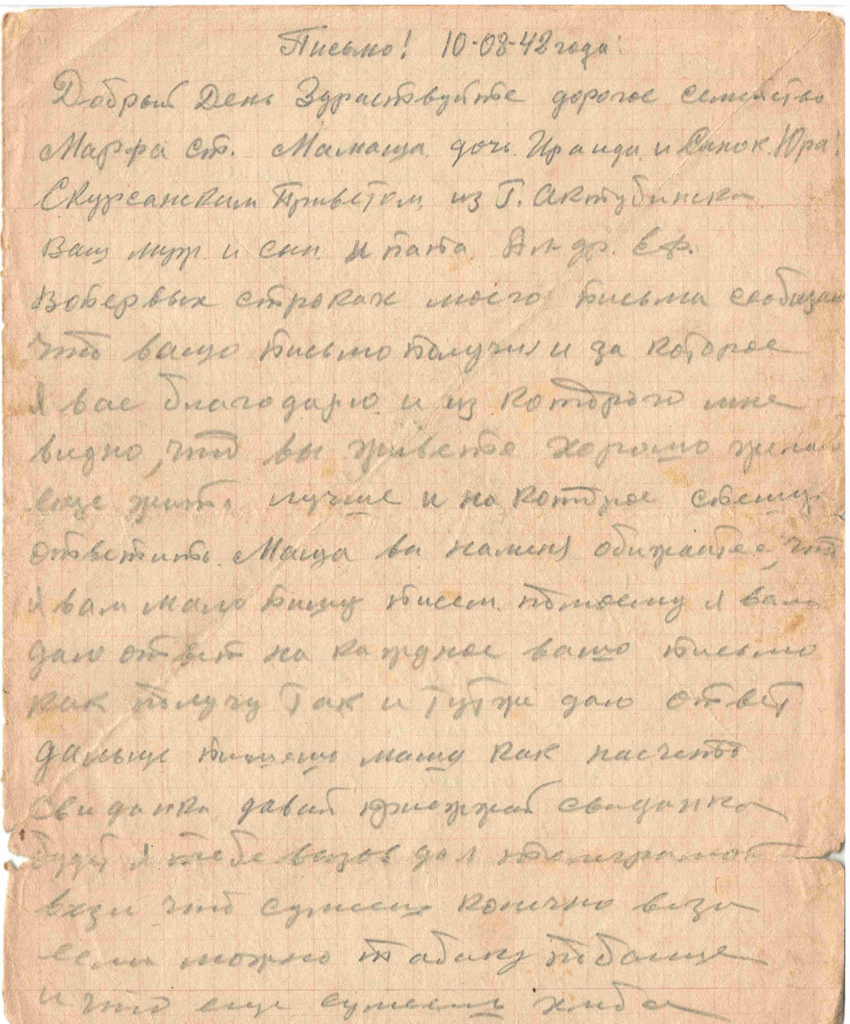 Письмо! 10-08-42 года.
Добрый День Здраствуйте дорогое семейство
Марфа Ст. Мамаша дочь Ираида и Сынок Юра!
Скурсанским Приветом из Г. Актубинска
Ваш муж и сын и папа Ал-др. Еф.
Вопервых строках моего письма сообщаю
что вашо письмо получил и за которое
я вас благодарю и из которого мне
видно, что вы живете хорошо желаю
еще жить лучше и на которое спешу
ответить. Маша вы наменя обижаетес, что
я вам мало пишу писем помоему я вам
даю ответ на каждное вашо письмо
как получу Так и Тутже даю ответ
дальше пишешь маша как насчето
свиданка давай приежжай свиданка
будет я тебе вызов дал телеграмой
вези что сумееш конечно вези
если можно табаку побольше
и что еще сумееш хлеба